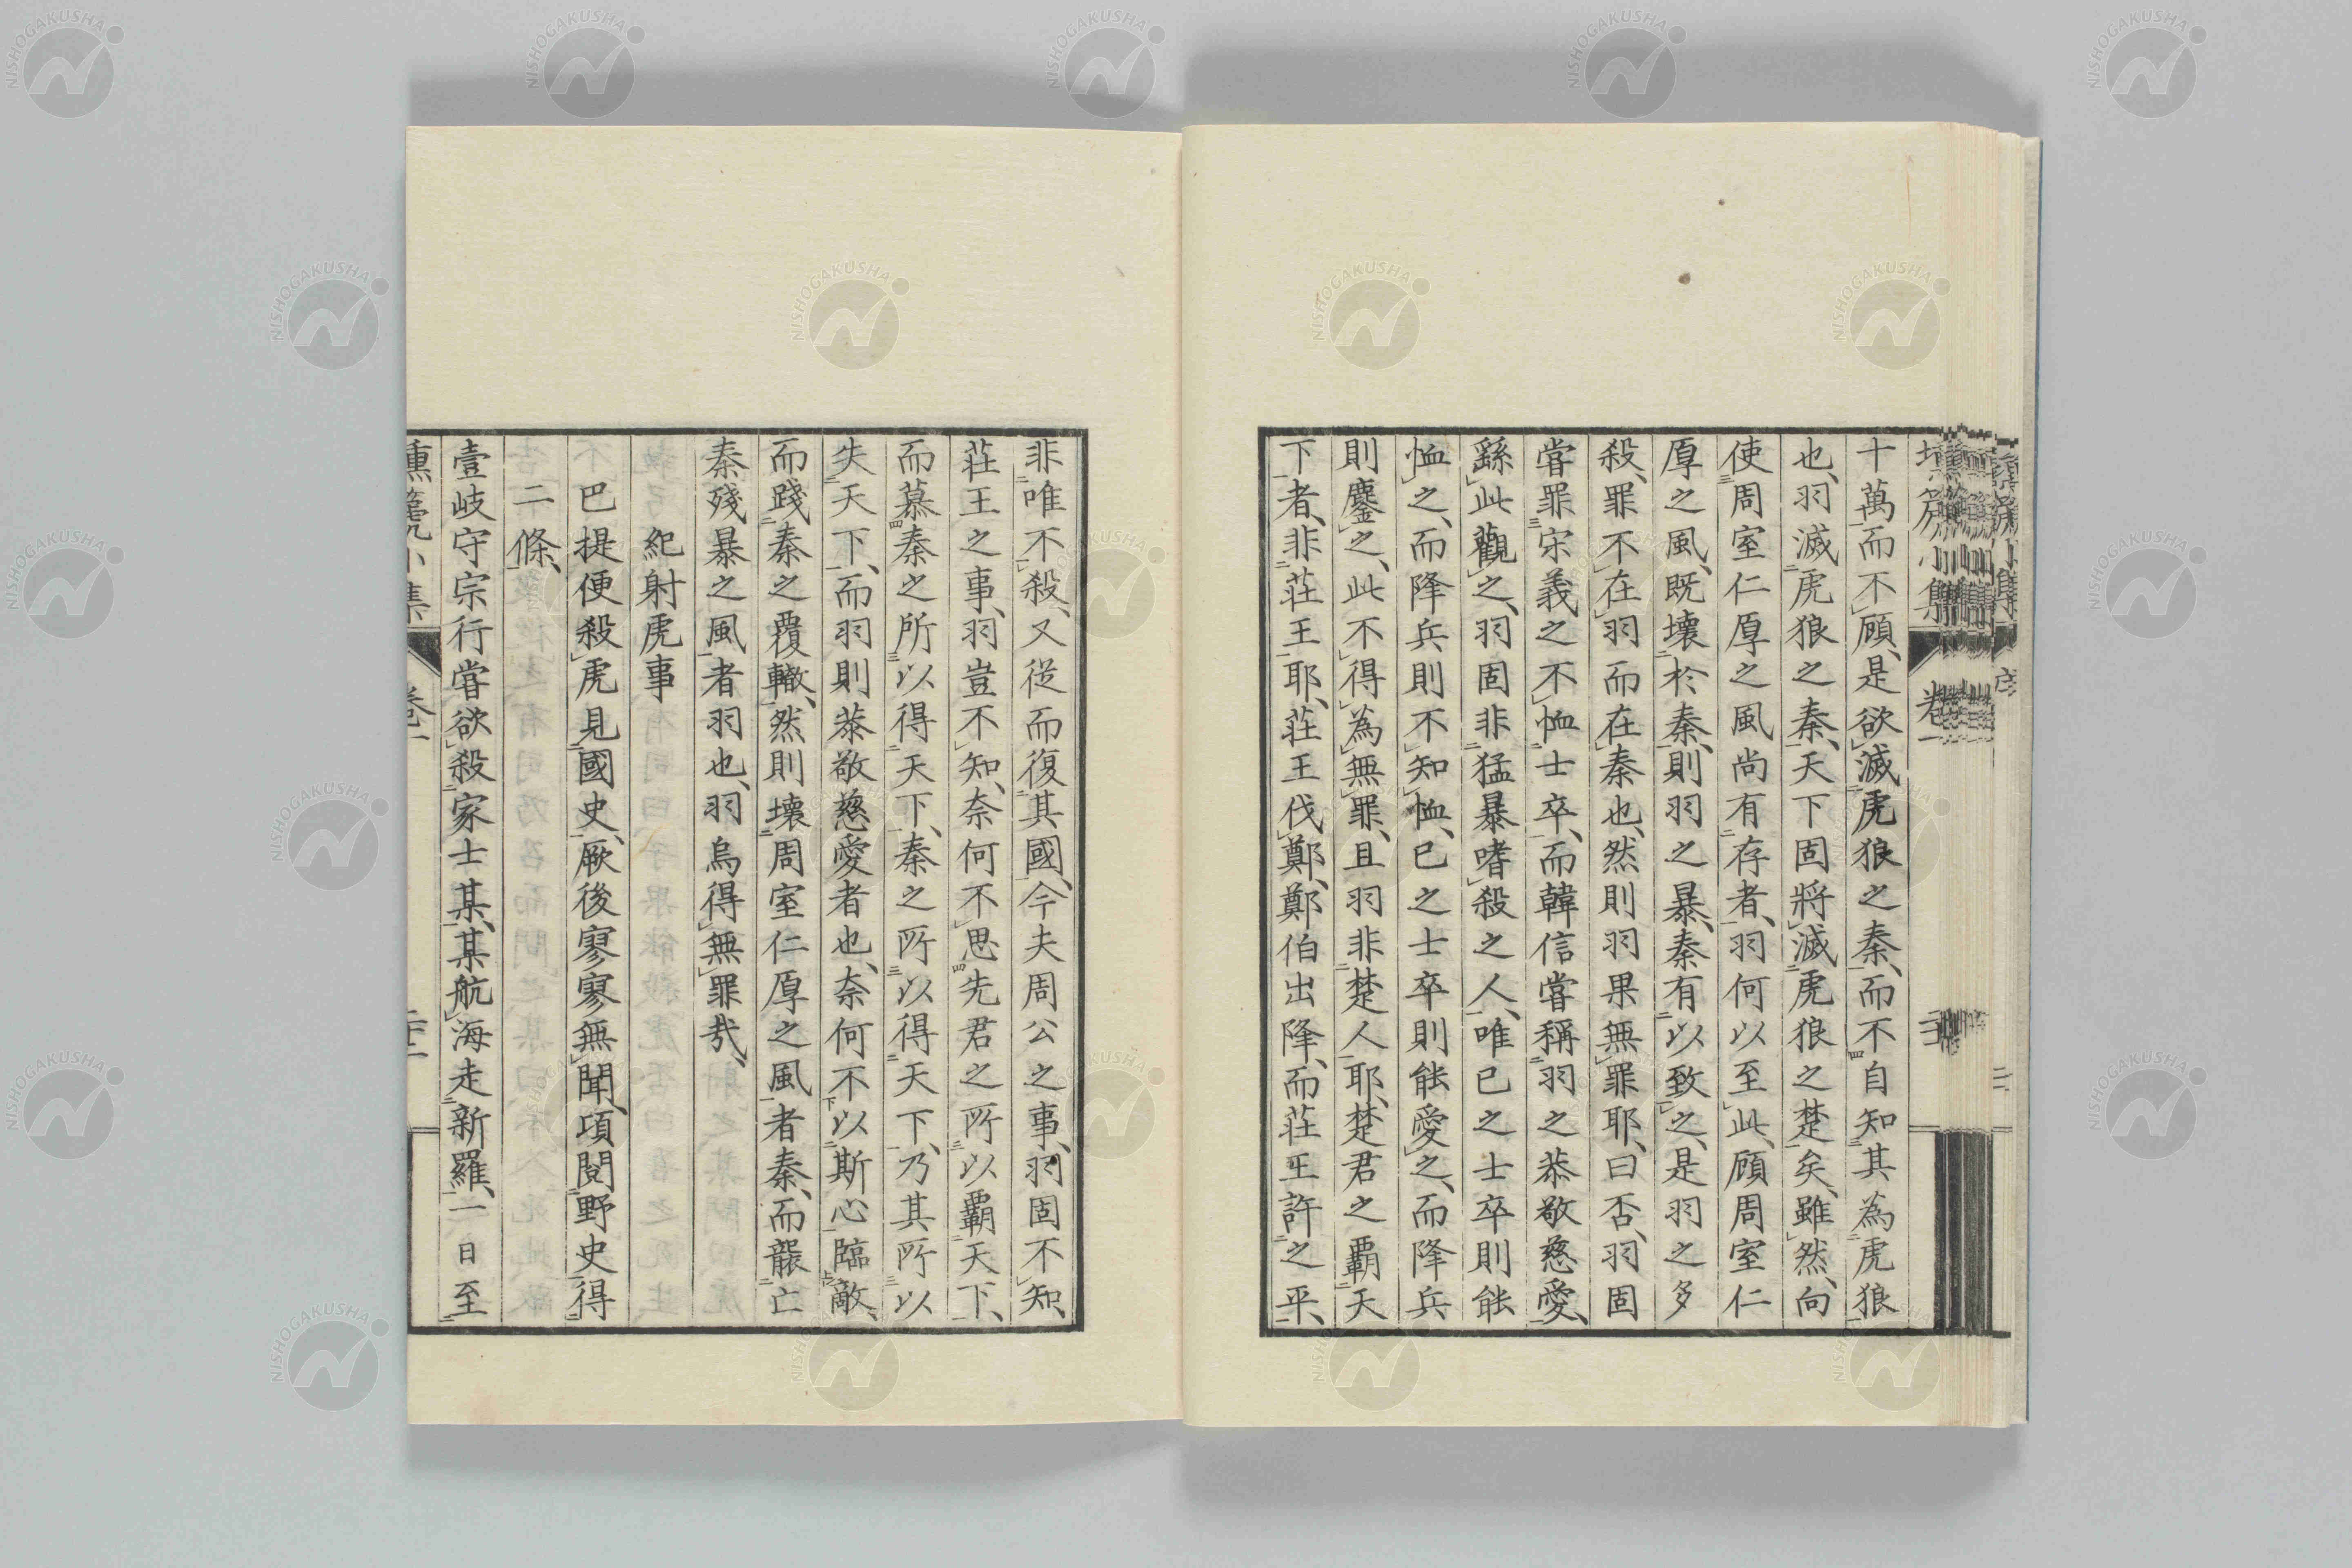 十萬而不顧、是欲滅虎狼之秦、而不自知其為虎狼
也、羽滅虎狼之秦、天下固將滅虎狼之楚矣、雖然、向
使周室仁厚之風尚有存者、羽何以至此、顧周室仁
厚之風、既壞於秦、則羽之暴、秦有以致之、是羽之多
殺、罪不在羽而在秦也、然則羽果無罪耶、曰否、羽固
嘗罪宋義之不恤士卒、而韓信嘗稱羽之恭敬慈愛、
繇此觀之、羽固非猛暴嗜殺之人、唯已之士卒則能
恤之、而降兵則不知恤、已之士卒則能愛之、而降兵
則鏖之、此不得為無罪、且羽非楚人耶、楚君之霸天
下者、非莊王耶、莊王伐鄭、鄭伯出降、而莊王許之平、
非唯不殺、又從而復其國、今夫周公之事、羽固不知、
莊王之事、羽豈不知、奈何不思先君之所以霸天下、
而慕秦之所以得天下、秦之所以得天下、乃其所以
失天下、而羽則恭敬慈愛者也、奈何不以斯心臨敵、
而踐秦之覆轍、然則壞周室仁厚之風者秦、而襲亡
秦殘暴之風者羽也、羽烏得無罪哉、
紀射虎事
巴提便殺虎見國史、厥後寥寥無聞、項閱野史得
二條、
壹岐守宗行嘗欲殺家士某、某航海走新羅、一日至
NISHOGAKUSHA